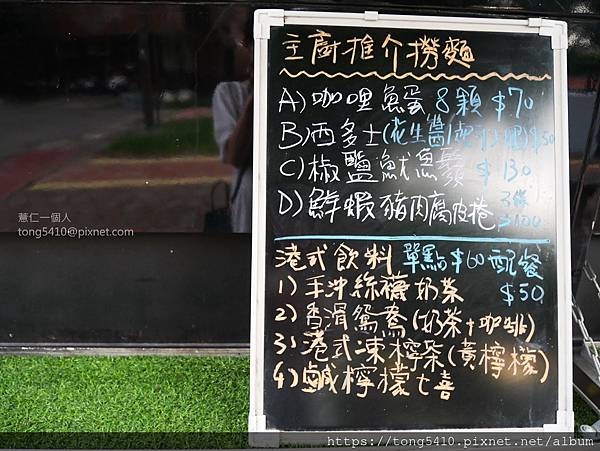 主廚推介撈麵
A)咖哩魚蛋 8顆 $70
B)西多士(花生醬/ $50
C)椒鹽魷魚鬚 $130
D)鮮蝦豬肉腐皮捲 3條 $100
港式飲料 單點$60 配餐 $50
1)手沖絲襪奶茶
2)香滑鴛鴦(奶茶+咖啡)
3)港式凍檸茶(黃檸檬)
4)鹹檸檬七喜
薏仁一個人
tong5410@pixnet.com
https://tong5410.pixnet.net/album